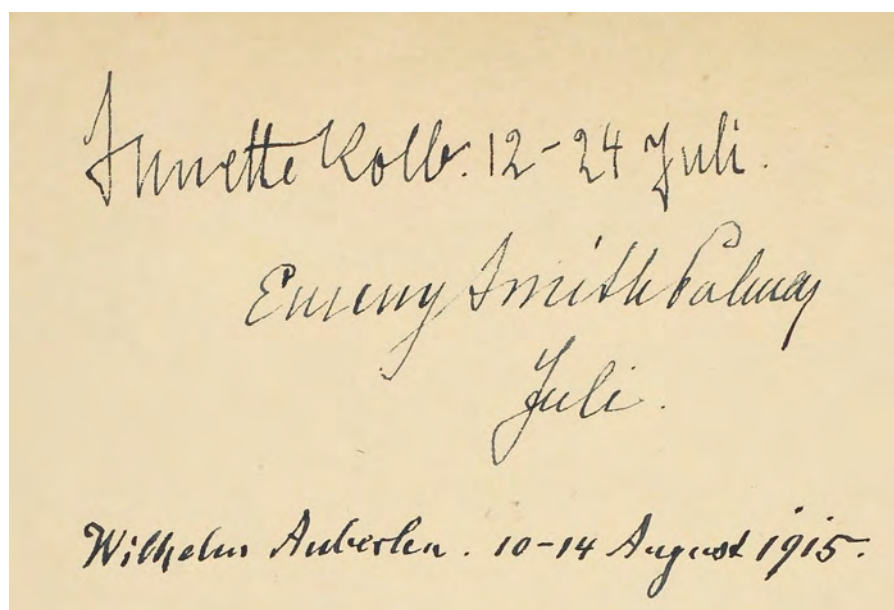 Annette Kolb. 12-24 Juli.
Smith
Juli.
Wilhelm Auberlen. 10-14 August 1915.